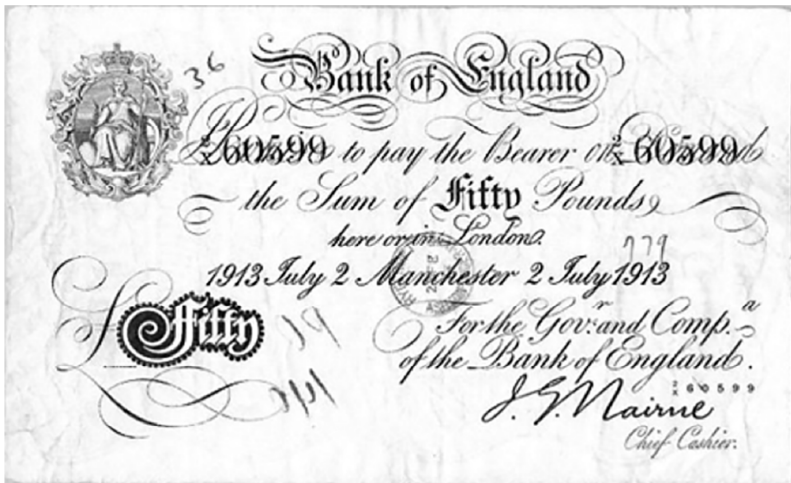 36
Bank of England
I Promise to pay the Bearer on Demand
2/X 60599 2/X 60599
the Sum of Fifty Pounds
here or in London.
779
1913 July 2 Manchester 2 July 1913
£ Fifty
For the Govr. and Compa.
of the Bank of England.
2/X 60599
J. G. Nairne
Chief Cashier.